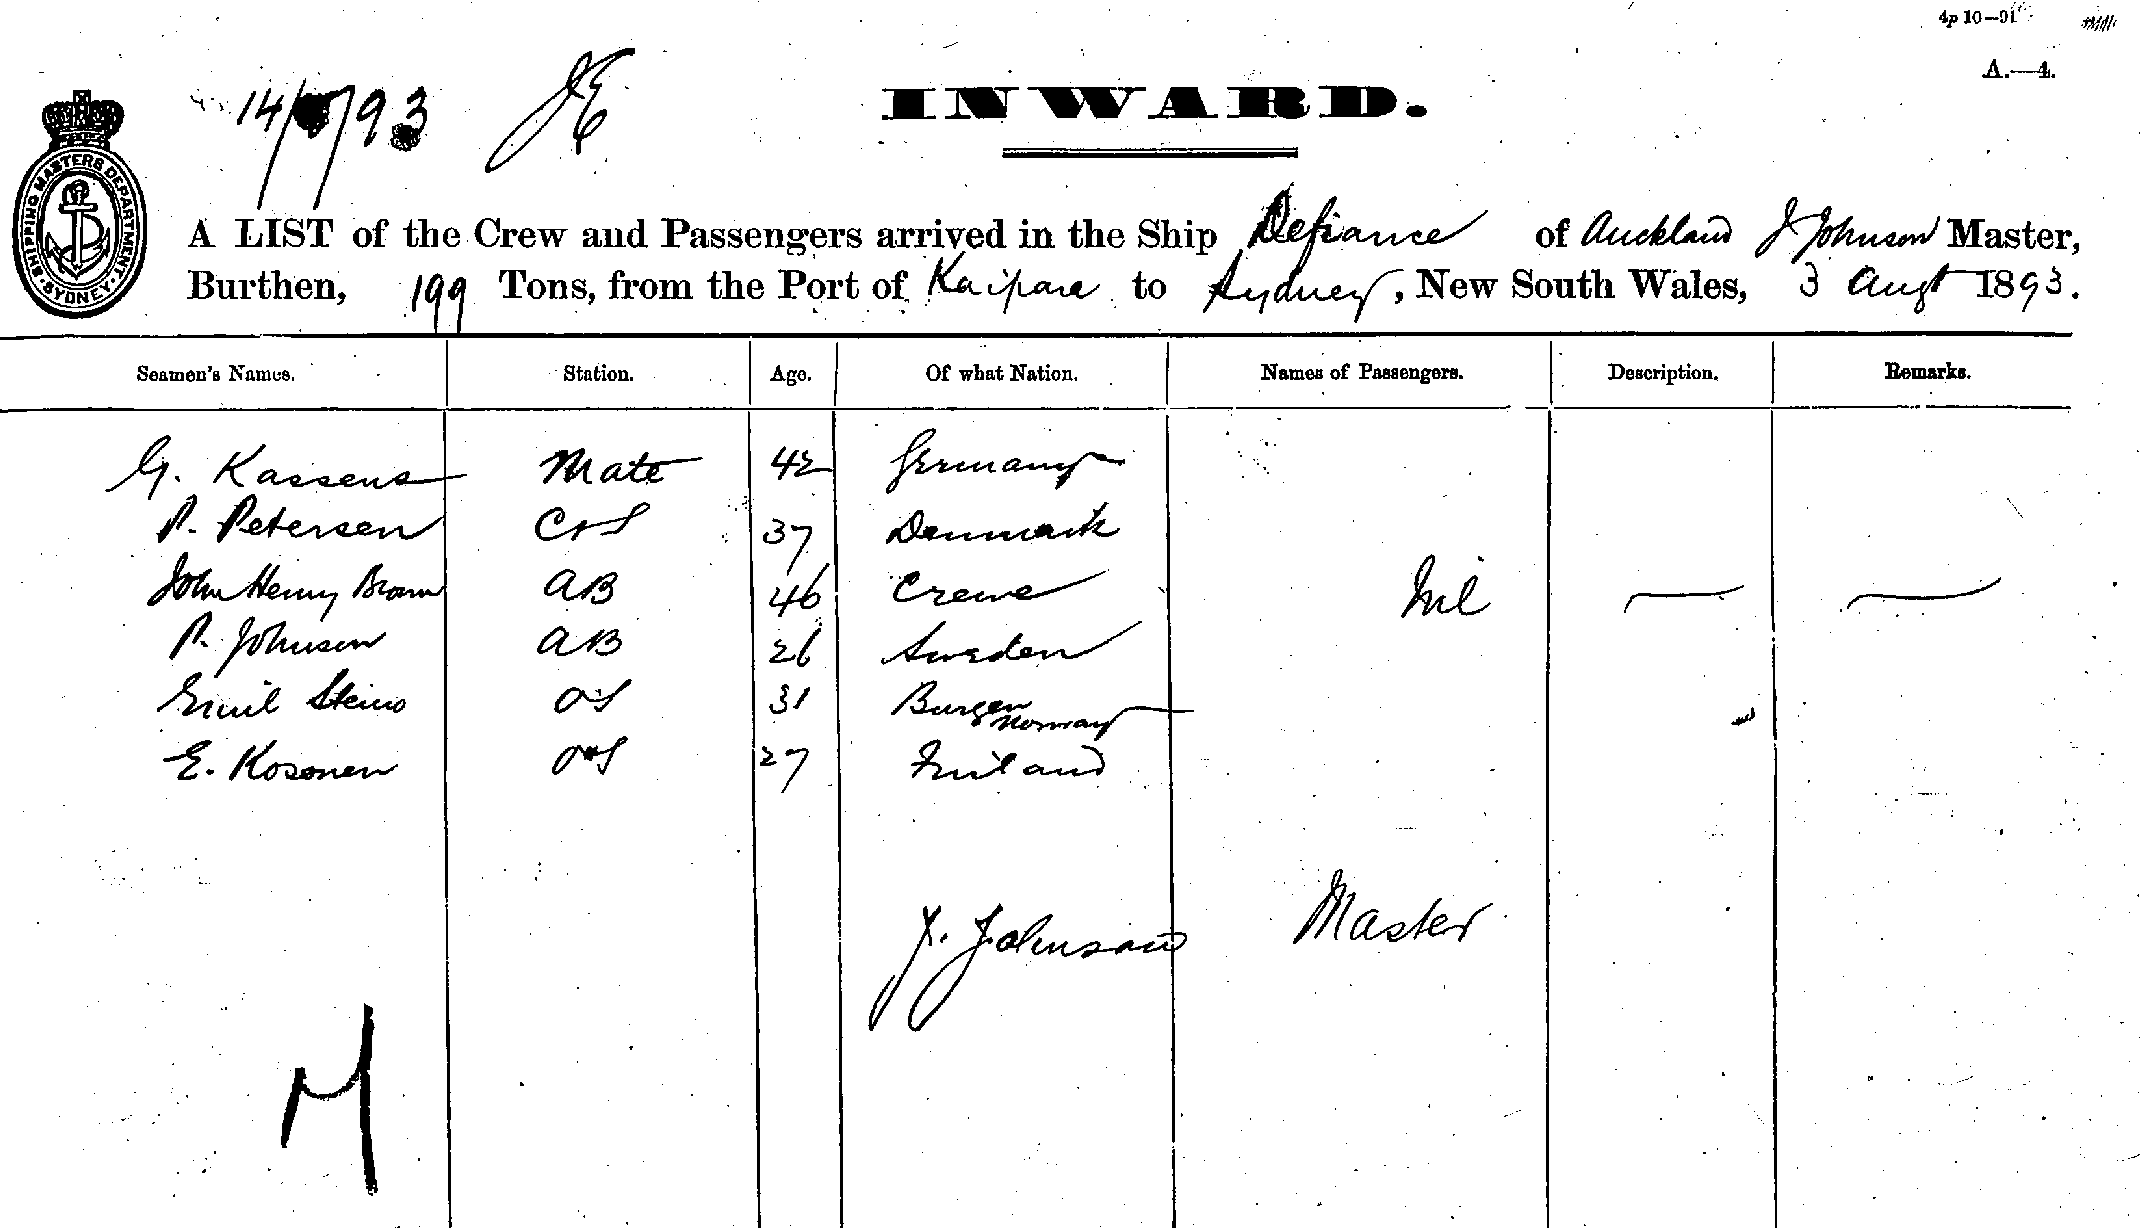 4p 10—91
A.—4.
14/8/93 JE
INWARD.
SHIPPING MASTERS DEPARTMENT
SYDNEY
A LIST of the Crew and Passengers arrived in the Ship Defiance of Auckland J Johnson Master,
Burthen, 199 Tons, from the Port of Kaipara to Sydney, New South Wales, 3 Augt 1893.
Seamen's Names. Station. Age. Of what Nation. Names of Passengers. Description. Remarks.
G. Kassens Mate 42 Germany
P. Petersen C&S 37 Denmark
John Henry Brown AB 46 Crewe Nil — —
P. Johnson AB 26 Sweden
Emil Steno OS 31 Burgen
Norway
E. Kosonen OS 27 Finland
J. Johnson Master